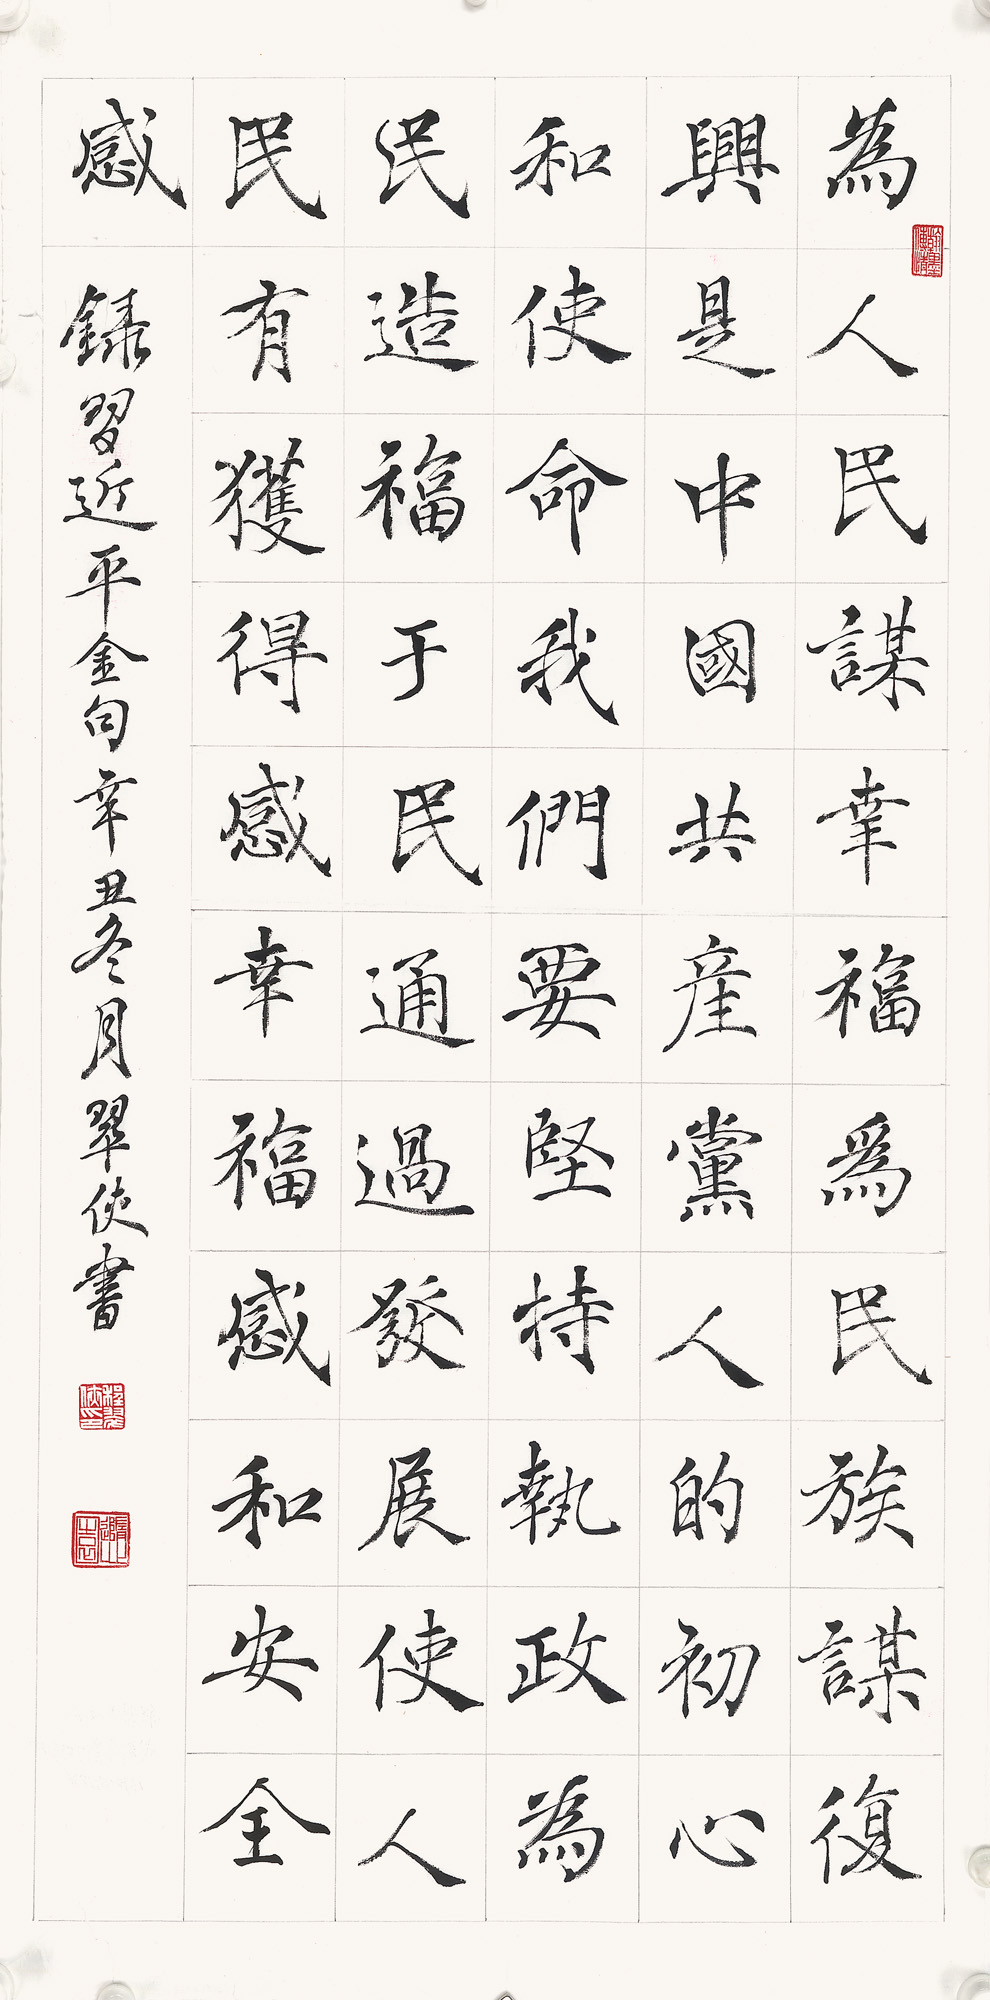 為人民謀幸福爲民族謀復
興是中國共産黨人的初心
和使命我們要堅持執政為
民造福于民通過發展使人
民有獲得感幸福感和安全
感
録習近平金句辛丑冬月翠侠書